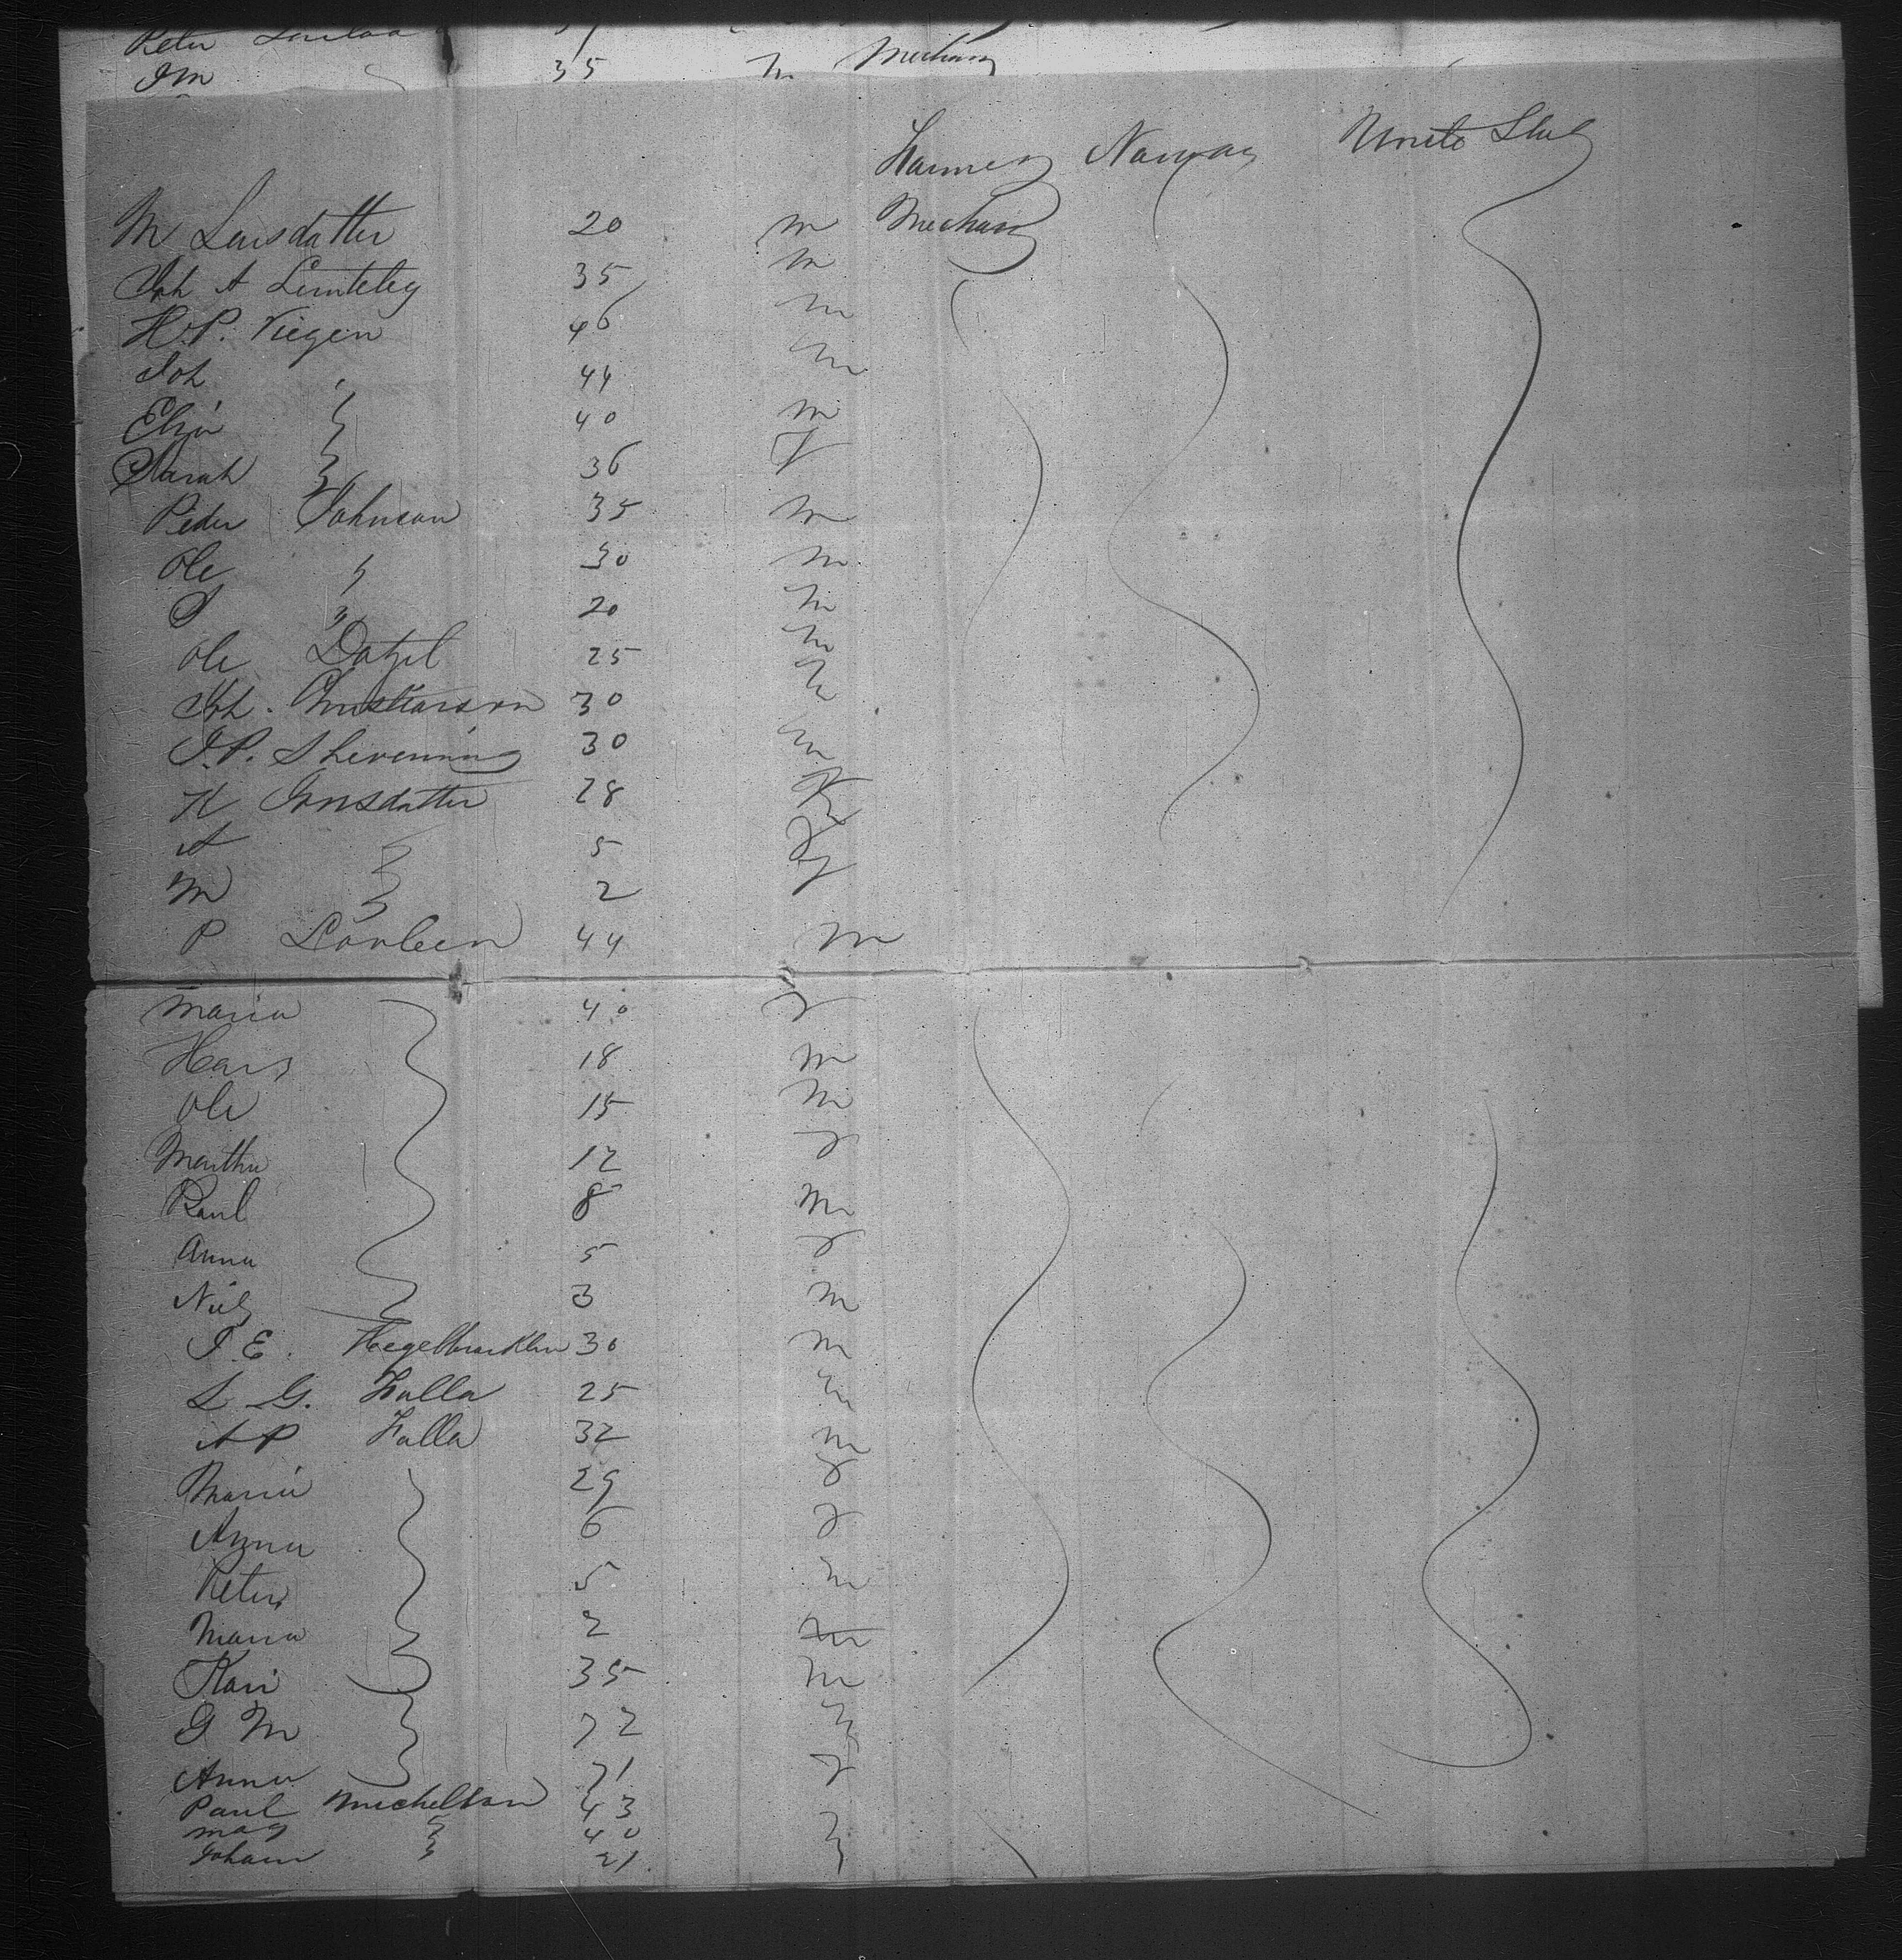 Peter
J M 35 m Mechanic
Farmer Norway United States
M Larsdatter 20 m Mechanic
Joh A 35 m
H. P. Viegen 46 m
Joh " 44 m
40 m
Sarah " 36 f
Peder Johnson 35 m
Ole " 30 m
S " 20 m
Ole 25 m
Joh. Christianson 30 m
J. P. 30 m
K 28
A 5 f
M 2 f
P 44 m
Maria 40 f
Hans 18 m
Ole 15 m
Martha 12 f
Paul 8 m
Anna 5 f
Niels 3 m
J. E. 30 m
L. G. Falla 25 m
A P Falla 32 m
Maria 29 f
Anna 6 f
Peter 5 m
Maria 2 m
Kari 35 m
G M 72 m
Anna 71 f
Paul Michelson 43
Mag " 40
Johann " 21